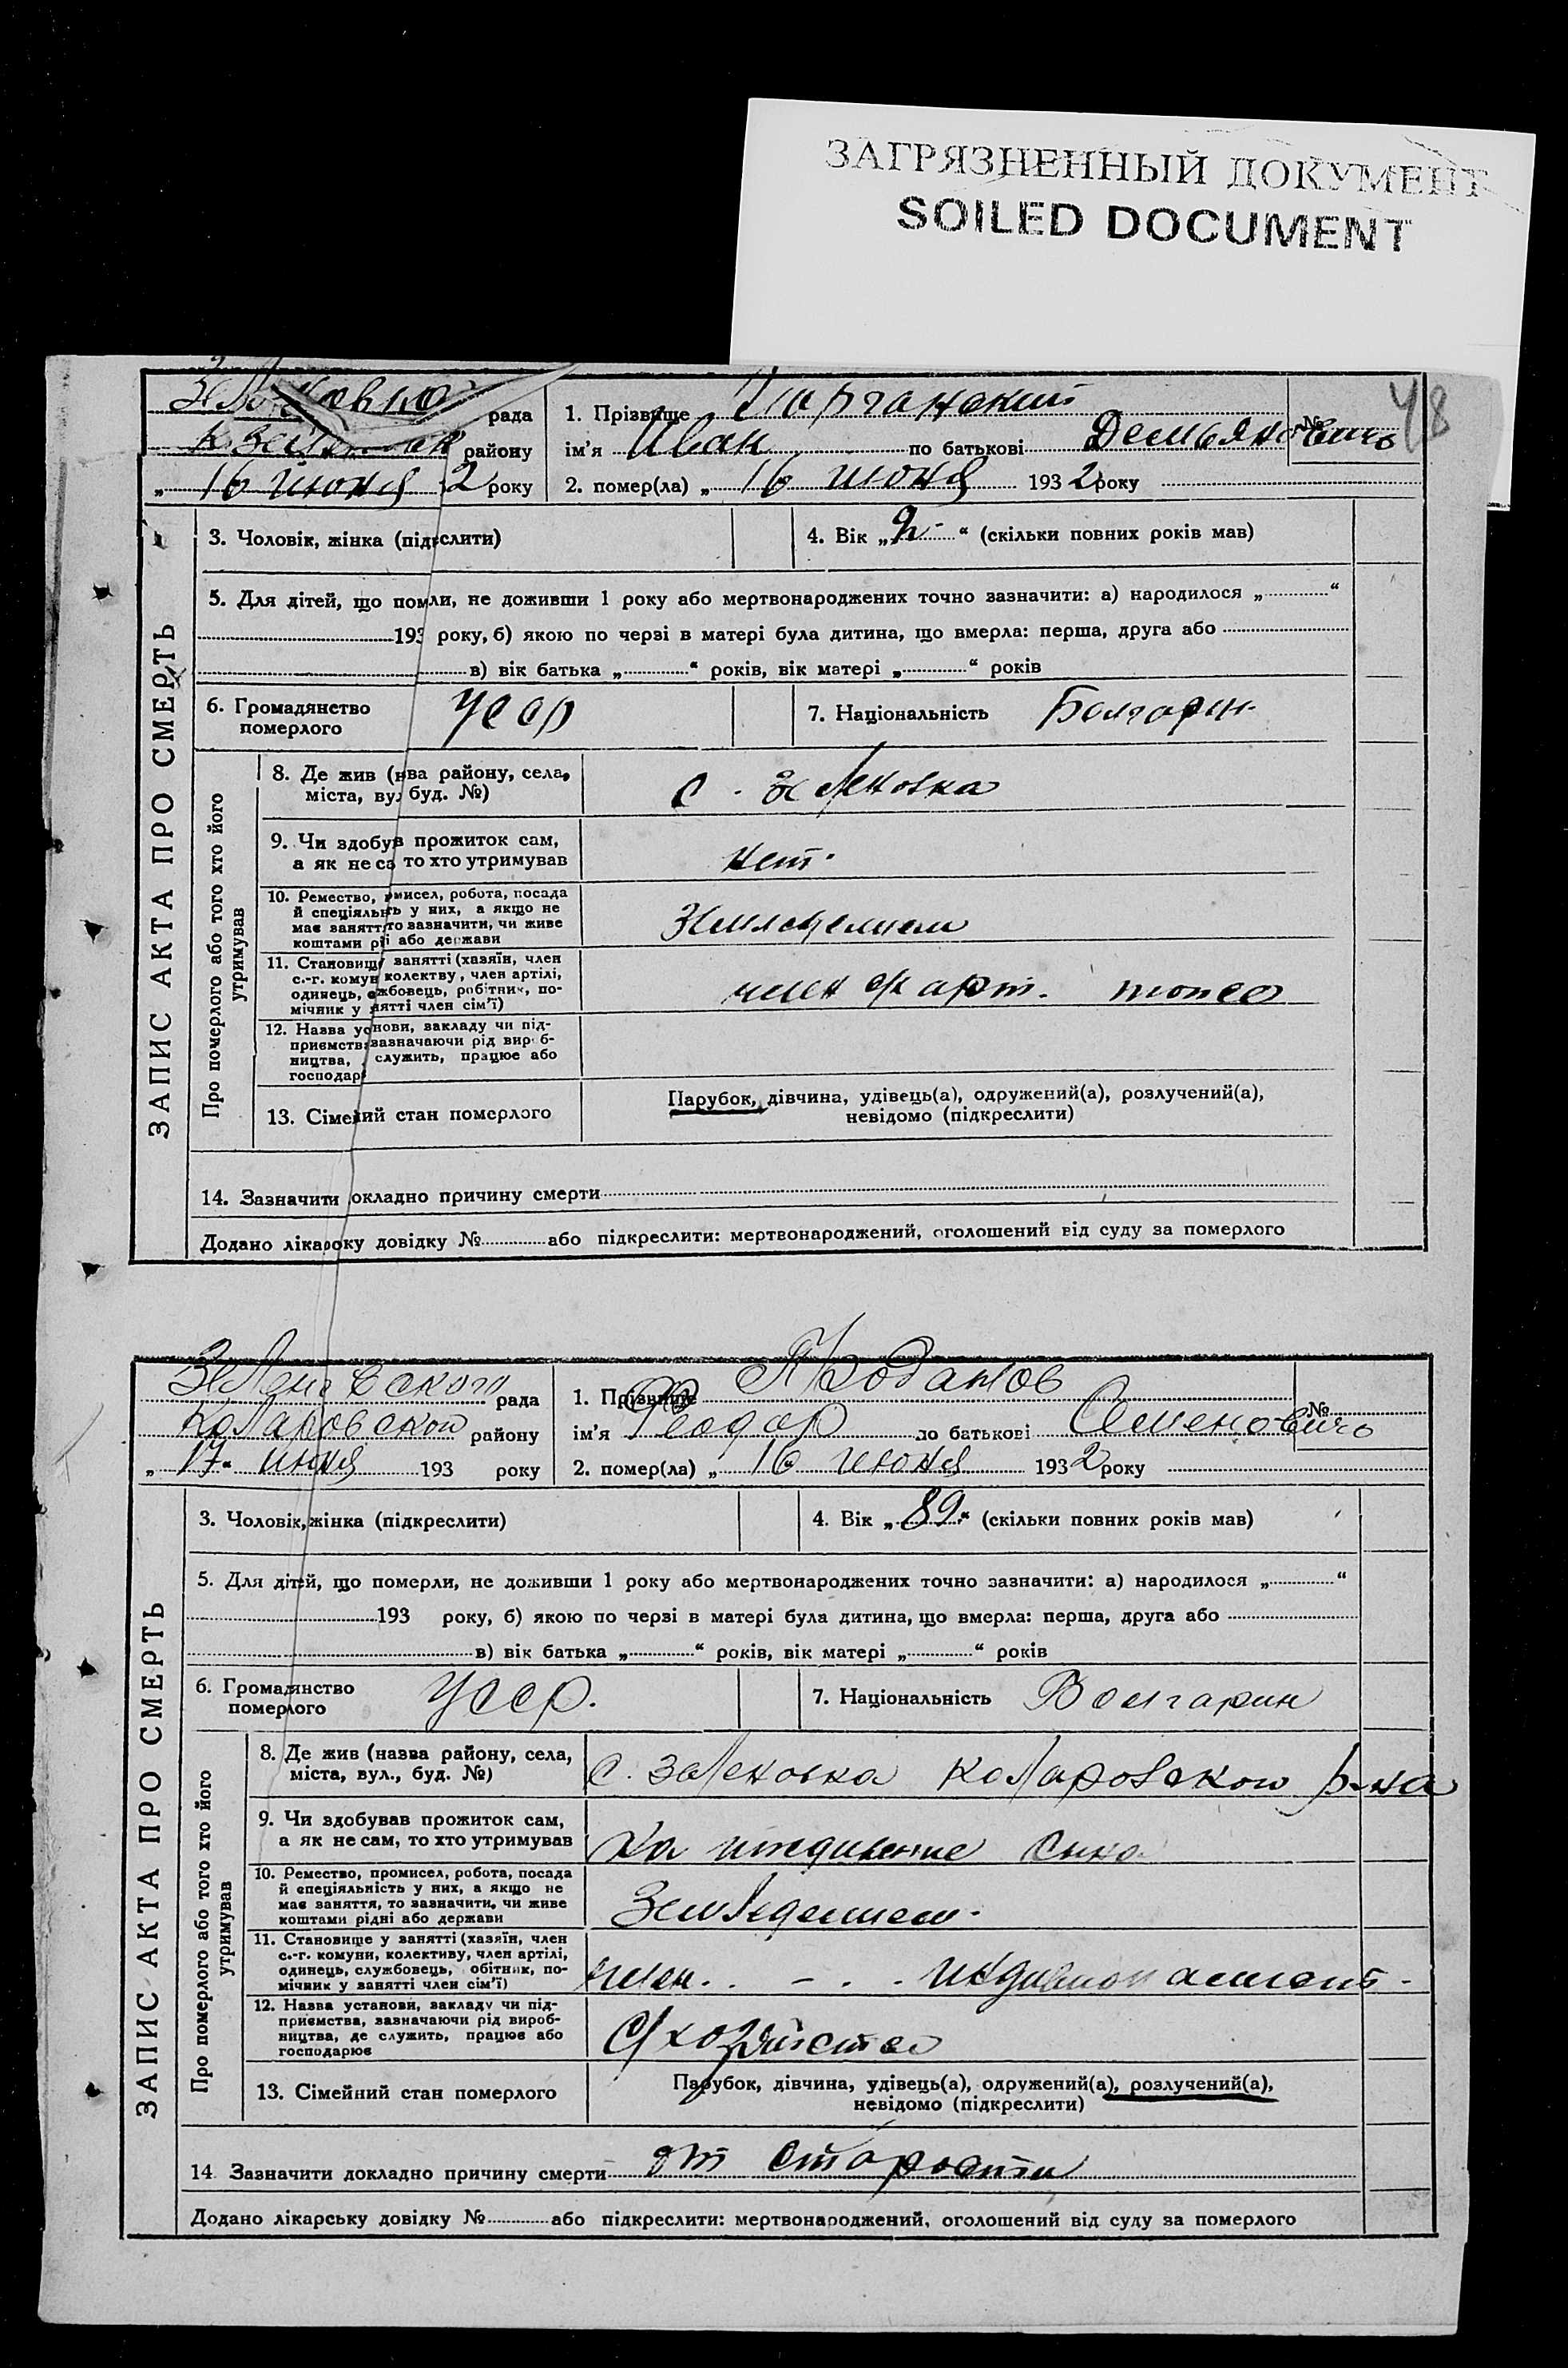 ЗАГРЯЗНЕННЫЙ ДОКУМЕНТ
SOILED DOCUMENT
48
рада
району
16 июня 2 року
1. Прізвище
ім'я Иван по батькові Демьянович №
2. помер(ла) „ 16 июня 1932 року
ЗАПИС АКТА ПРО СМЕРТЬ
3. Чоловік, жінка (підкслити)
4. Вік „ “ (скільки повних років мав)
5. Для дітей, що помли, не доживши 1 року або мертвонароджених точно зазначити: а) народилося „ “
193 року, б) якою по черзі в матері була дитина, що вмерла: перша, друга або
в) вік батька „ “ років, вік матері „ “ років
6. Громадянство
померлого
Усср
7. Національність Болгарин
Про померлого або того хто його
утримував
8. Де жив (нва району, села,
міста, вул буд. №)
с. Зеленовка
9. Чи здобув прожиток сам,
а як не са то хто утримував
нет.
10. Ремество, рмисел, робота, посада
й спеціяльнь у них, а якщо не
має заняттто зазначити, чи живе
коштами рі або держави
11. Становище занятті (хазяїн, член
с.-г. комун колектву, член артілі,
одинець, сжбовець, робітник, по-
мічник у нятті член сім'ї)
член арт.
12. Назва уснови, закладу чи під-
приємств зазначаючи рід вироб-
ництва, служить, працює або
господар
13. Сімений стан померлого
Парубок, дівчина, удівець(а), одружений(а), розлучений(а),
невідомо (підкреслити)
14. Зазначити окладно причину смерти
Додано лікароку довідку № або підкреслити: мертвонароджений, оголошений від суду за померлого
рада
Коларовской району
„ 17 июня 193 року
1. Прізвище Проданов
ім'я Феодор по батькові Семенович №
2. помер(ла) „ 16 июня 1932 року
ЗАПИС АКТА ПРО СМЕРТЬ
3. Чоловік, жінка (підкреслити)
4. Вік „ 89 “ (скільки повних років мав)
5. Для дітей, що померли, не доживши 1 року або мертвонароджених точно зазначити: а) народилося „ “
193 року, б) якою по черзі в матері була дитина, що вмерла: перша, друга або
в) вік батька „ “ років, вік матері „ “ років
6. Громадянство
померлого
Усср.
7. Національність Болгарин
Про померлого або того хто його
утримував
8. Де жив (назва району, села,
міста, вул., буд. №)
с. Зеленовка Коларовского р-на
9. Чи здобував прожиток сам,
а як не сам, то хто утримував
на иждивение сына
10. Ремество, промисел, робота, посада
й спеціяльність у них, а якщо не
має заняття, то зазначити, чи живе
коштами рідні або держави
11. Становище у занятті (хазяїн, член
с.-г. комуни, колективу, член артілі,
одинець, службовець, обітник, по-
мічник у занятті член сім'ї)
член
12. Назва установи, закладу чи під-
приємства, зазначаючи рід вироб-
ництва, де служить, працює або
господарює
С/хозяйство
13. Сімейний стан померлого
Парубок, дівчина, удівець(а), одружений(а), розлучений(а),
невідомо (підкреслити)
14. Зазначити докладно причину смерти от старости
Додано лікарську довідку № або підкреслити: мертвонароджений, оголошений від суду за померлого